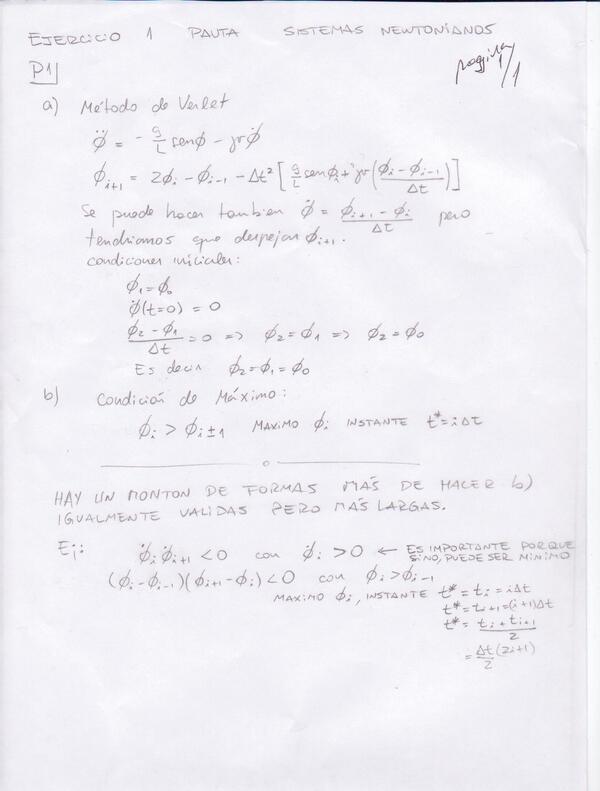 EJERCICIO 1 PAUTA SISTEMAS NEWTONIANOS
pagina 1/1
P1
a) Método de Verlet
φ̈ = -g/L senφ - γφ̇
φᵢ₊₁ = 2φᵢ - φᵢ₋₁ - Δt² [g/L senφᵢ + γ((φᵢ - φᵢ₋₁)/Δt)]
Se puede hacer tambien φ̇ = (φᵢ₊₁ - φᵢ)/Δt pero
tendriamos que despejar φᵢ₊₁.
condiciones iniciales:
φ₁ = φ₀
φ̇(t=0) = 0
(φ₂ - φ₁)/Δt = 0 => φ₂ = φ₁ => φ₂ = φ₀
Es decir φ₂ = φ₁ = φ₀
b) Condición de Máximo:
φᵢ > φᵢ±₁ MAXIMO φᵢ INSTANTE t* = iΔt
HAY UN MONTON DE FORMAS MÁS DE HACER b)
IGUALMENTE VALIDAS PERO MÁS LARGAS.
Ej: φ̇ᵢ φ̇ᵢ₊₁ < 0 con φ̇ᵢ > 0 ← ES IMPORTANTE PORQUE
SINO, PUEDE SER MINIMO
(φᵢ - φᵢ₋₁)(φᵢ₊₁ - φᵢ) < 0 con φᵢ > φᵢ₋₁
MAXIMO φᵢ, INSTANTE t* = tᵢ = iΔt
t* = tᵢ₊₁ = (i+1)Δt
t* = (tᵢ + tᵢ₊₁)/2
= Δt/2 (2i+1)